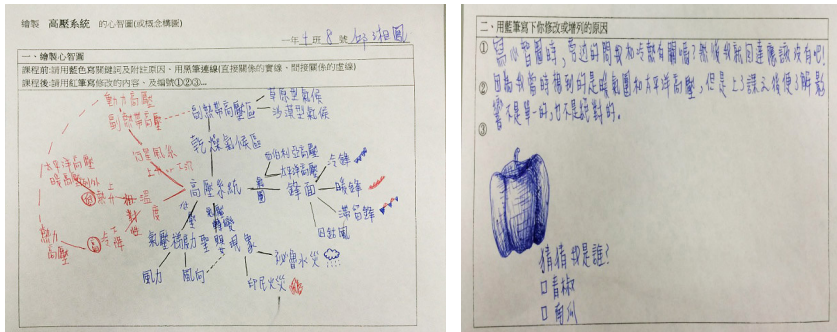 繪製 高壓系統 的心智圖(或概念構圖)
一年土班8號
一、繪製心智圖
課程前:請用藍色寫關鍵詞及附註原因、用黑筆連線(直接關係的實線、間接關係的虛線)
課程後:請用紅筆寫修改的內容、及編號①②③...
動力高壓
副熱帶高壓
副熱帶高壓區
草原型氣候
沙漠型氣候
乾燥氣候區
太平洋高壓
西伯利亞高壓
太平洋高壓
冷鋒
高壓系統
氣團
鋒面
暖鋒
滯留鋒
溫度
熱力
相對性
冷
熱力高壓
氣壓梯度力
聖嬰現象
風力
風向
祕魯水災
印尼火災
二、用藍筆寫下你修改或增列的原因
① 寫心智圖時,旁邊的問我和冷熱有關嗎?然後我就回達應該沒有吧!
② 因為我當時想到的是暖氣團和太平洋高壓,但是上了課之後便了解影
響不是單一的,也不是絕對的。
③
猜猜我是誰?
□青椒
□南瓜